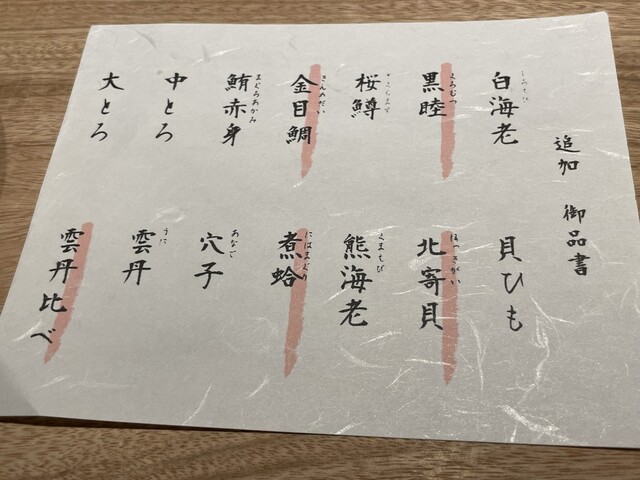 追加 御品書
白海老
しろえび
黒睦
くろむつ
桜鱒
さくらます
金目鯛
きんめだい
鮪赤身
まぐろあかみ
中とろ
大とろ
貝ひも
北寄貝
ほっきがい
熊海老
くまえび
煮蛤
にはまぐり
穴子
あなご
雲丹
うに
雲丹比べ